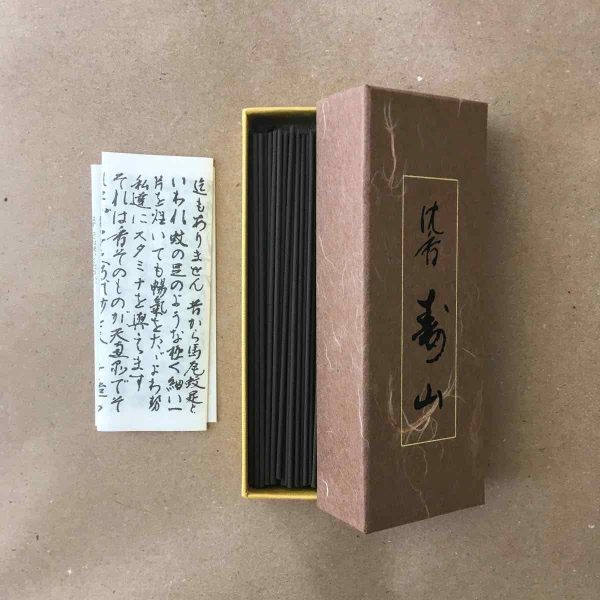 沈香 寿山
迄もありません 昔から馬尾蚊足と
いわれ 蚊の足のような極く細い一
片を炷いても暢氣をたゞよわせ
私達にスタミナを與えます
それは香そのものが天然でそ